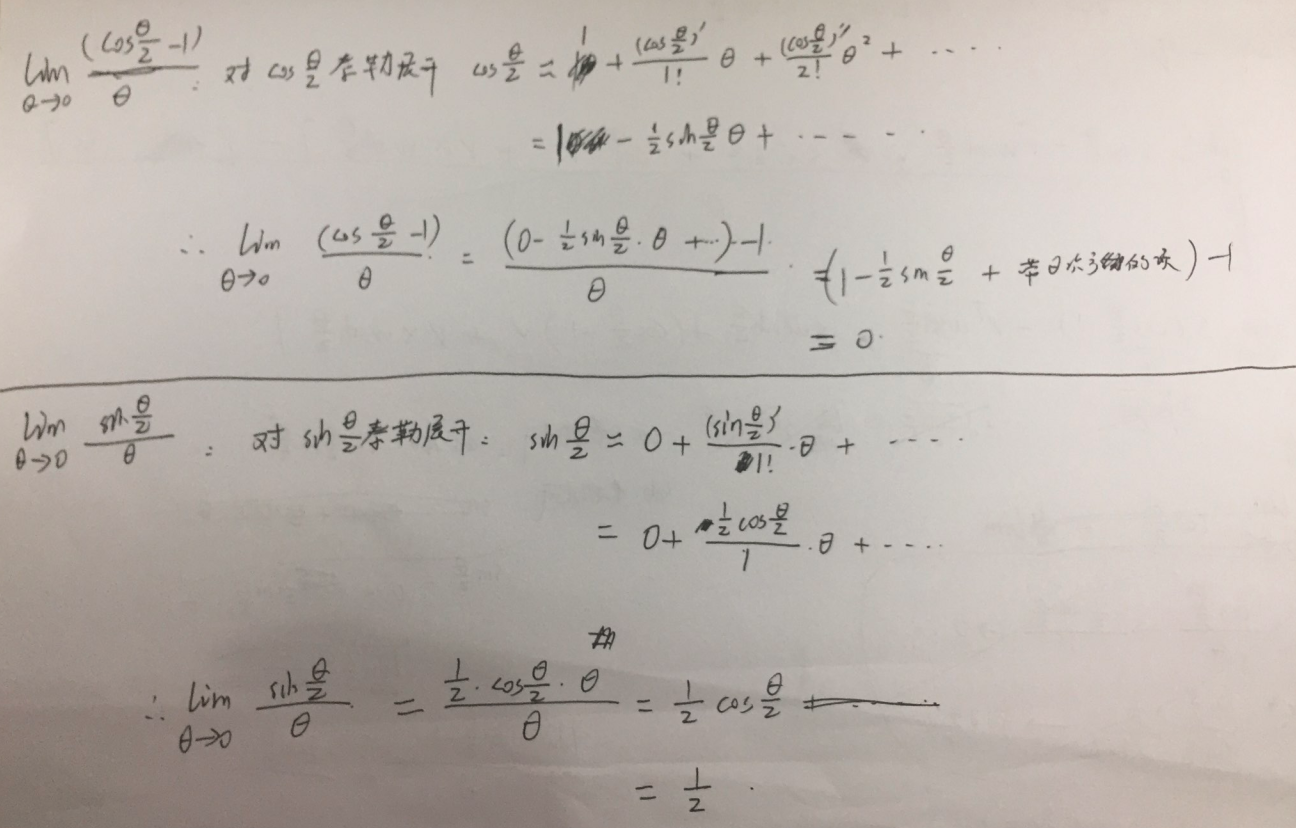 lim_{θ→0} (cos θ/2 -1)/θ : 对 cos θ/2 泰勒展开 cos θ/2 ≈ 1 + (cos θ/2)'/1! θ + (cos θ/2)''/2! θ² + ·····
= 1 - 1/2 sin θ/2 θ + ·····
∴ lim_{θ→0} (cos θ/2 -1)/θ = ((0 - 1/2 sin θ/2 · θ + ···) -1)/θ = (1 - 1/2 sin θ/2 + 带θ的项) -1
= 0.
lim_{θ→0} (sin θ/2)/θ : 对 sin θ/2 泰勒展开: sin θ/2 ≈ 0 + (sin θ/2)'/1! · θ + ·····
= 0 + (1/2 cos θ/2)/1 · θ + ·····
∴ lim_{θ→0} (sin θ/2)/θ = (1/2 · cos θ/2 · θ)/θ = 1/2 cos θ/2
= 1/2 .